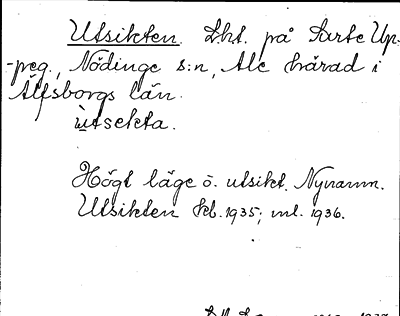 Utsikten. Lht. på Surte Up-
-peg., Nödinge s:n, Ale härad i
Älfsborgs län.
ùtsekta.
Högt läge o. utsikt. Nynamn.
Utsikten fkb. 1935; ml. 1936.